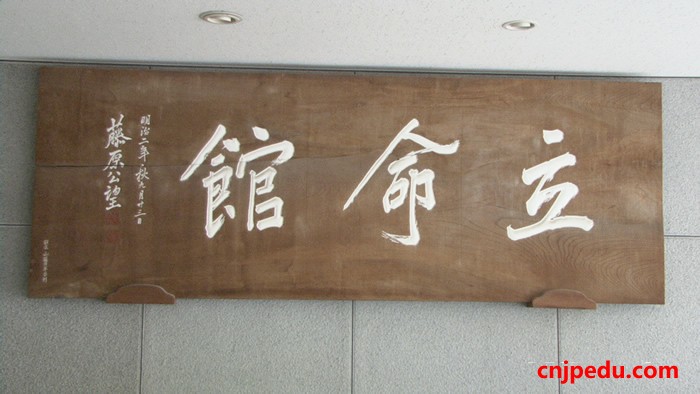 立命館
明治二年秋九月廿三日
藤原公望
cnjpedu.com